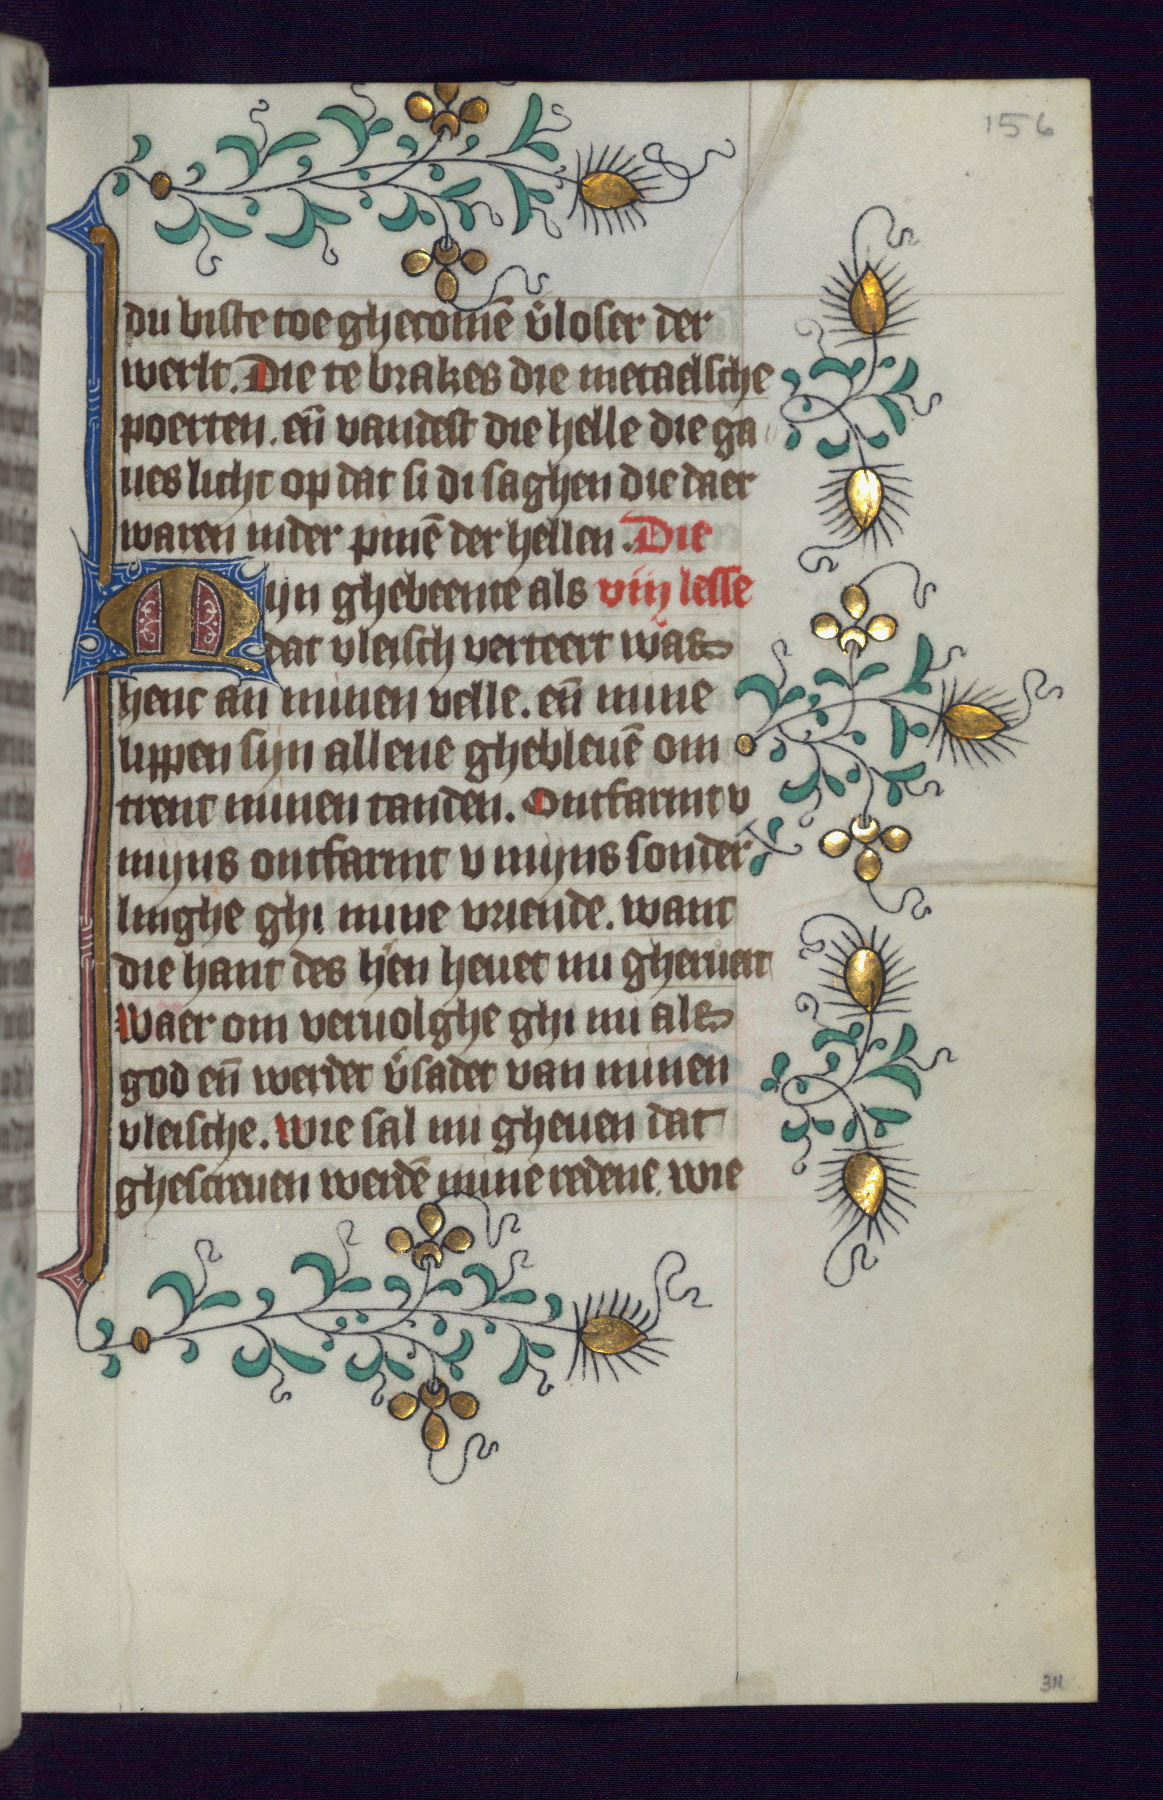 156
du biste toe ghecomē v̓loser der
werlt. Die te brakes die metaelsche
poerten. en̄ vandest die helle die ga
ues licht op dat si di saghen die daer
waren inder pinē der hellen. Die
Mijn ghebeente als viij lesse
dat vleisch verteert was
henc an minen velle. en̄ mine
lippen sijn allene ghebleuē om
trent minen tanden. Ontfarmt v
mijns ontfarmt v mijns sonder
linghe ghi mine vriende. want
die hant des hēn heuet mi gheruert
Waer om veruolghe ghi mi als
god en̄ werdet v̓sadet van minen
vleische. Wie sal mi gheuen dat
ghescreuen werdē mine redene. wie
311